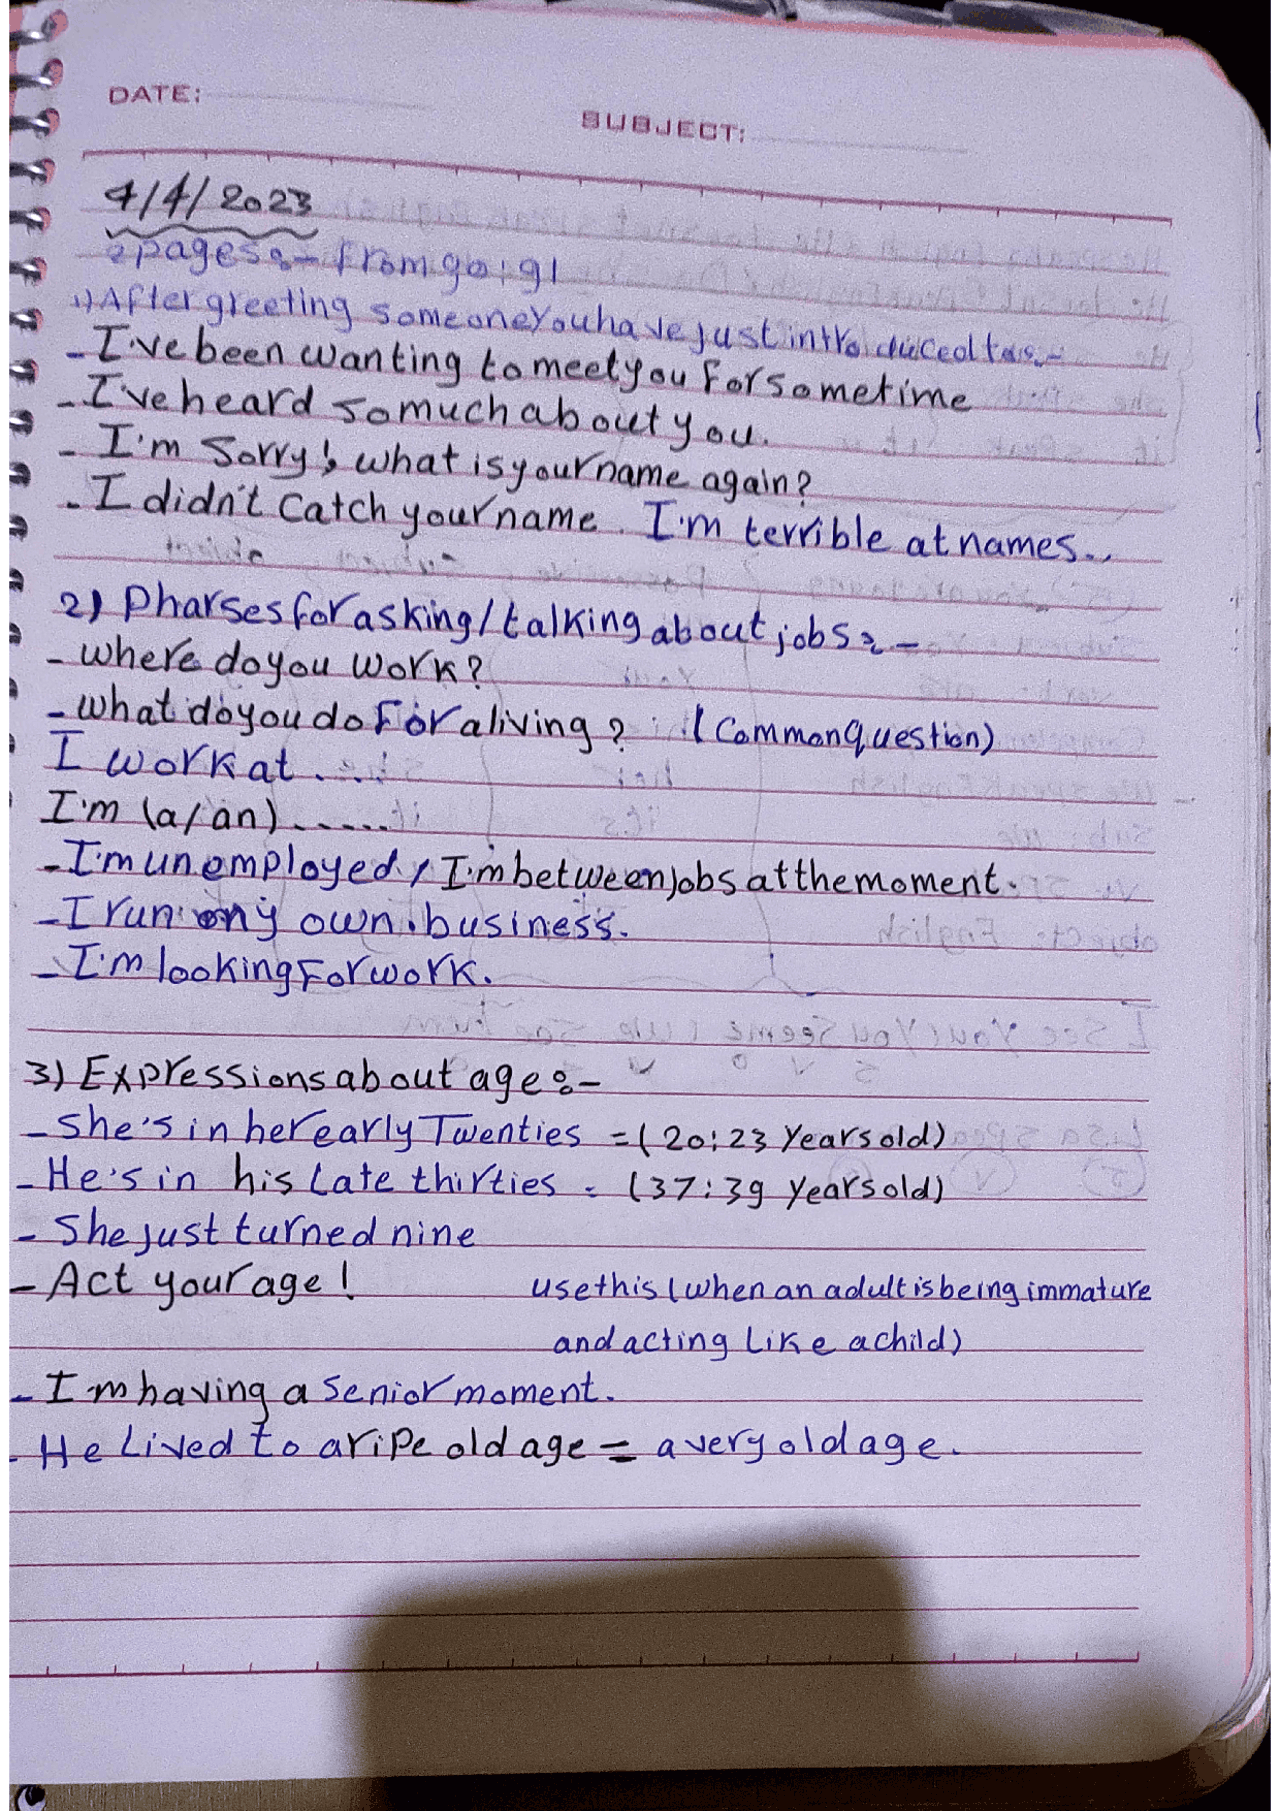 DATE:
SUBJECT:
4/4/2023
2 pages:- from 90:91
1) After greeting someone You have just introduced to:-
- I've been wanting to meet you For some time
- I've heard so much about you.
- I'm Sorry!, what is your name again?
- I didn't Catch your name. I'm terrible at names..
2) Pharses for asking/talking about jobs:-
- where do you work?
- what do you do For a living? (Common question)
I work at ....
I'm (a/an) ......
- I'm unemployed / I'm between jobs at the moment.
- I run my own business.
- I'm looking For work.
3) Expressions about age:-
- She's in her early Twenties = (20:23 Years old)
- He's in his Late thirties = (37:39 years old)
- She just turned nine
- Act your age! use this (when an adult is being immature
and acting Like a child)
- I'm having a Senior moment.
- He Lived to a ripe old age = a very old age.